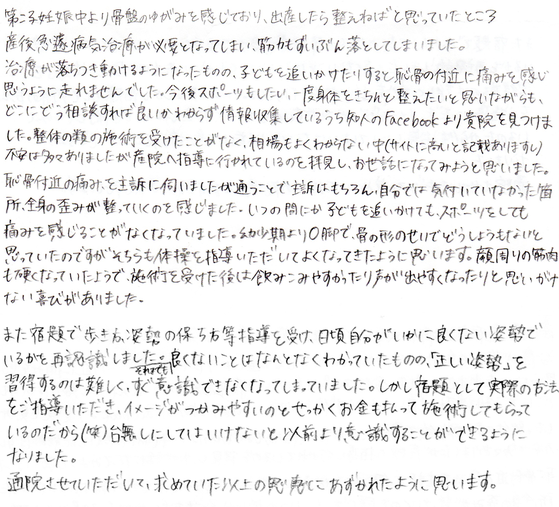 第二子妊娠中より骨盤のゆがみを感じており、出産したら整えねばと思っていたところ
産後急遽病気治療が必要となってしまい、筋力もずいぶん落としてしまいました。
治療が落ちつき動けるようになったものの、子どもを追いかけたりすると恥骨の付近に痛みを感じ
思うように走れませんでした。今後スポーツもしたい、一度身体をきちんと整えたいと思いながらも、
どこにどう相談すれば良いかわからず情報収集しているうち知人のFacebookより貴院を見つけま
した。整体の類の施術を受けたことがなく、相場もよくわからない中(サイトに高いと記載ありますし)
不安は多々ありましたが産院へ指導に行かれているのを拝見し、お世話になってみようと思いました。
恥骨付近の痛みを主訴に伺いましたが通うことで主訴はもちろん、自分では気付いていなかった箇
所、全身の歪みが整っていくのを感じました。いつの間にか子どもを追いかけても、スポーツをしても
痛みを感じることがなくなっていました。幼少期よりO脚で、骨の形のせいでどうしようもないと
思っていたのですがそちらも体操を指導いただいてよくなってきたように思います。顔周りの筋肉
も硬くなっていたようで、施術を受けた後は飲みこみやすかったり声が出やすくなったりと思いがけ
ない喜びがありました。
また宿題で歩き方、姿勢の保ち方等指導を受け、日頃自分がいかに良くない姿勢で
いるかを再認識しました。それまでも良くないことはなんとなくわかっていたものの、「正しい姿勢」を
習得するのは難しく、すぐ意識できなくなってしまっていました。しかし宿題として実際の方法
をご指導いただき、イメージがつかみやすいのとせっかくお金も払って施術してもらって
いるのだから(笑)台無しにしてはいけないと以前より意識することができるように
なりました。
通院させていただいて、求めていた以上の恩恵にあずかれたように思います。